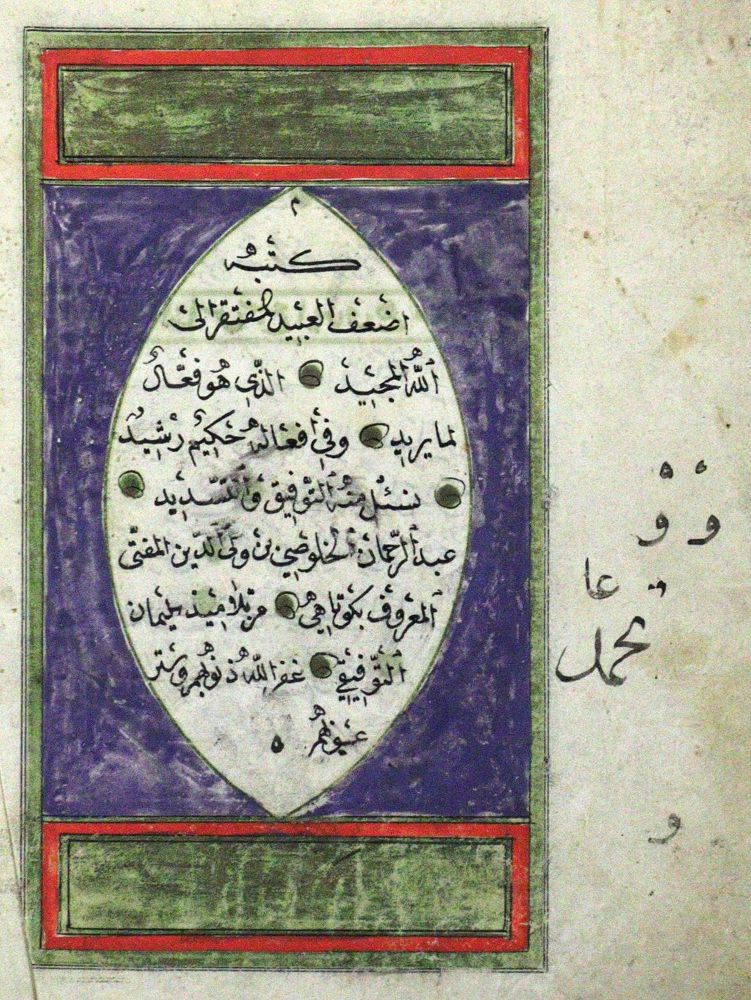 م
كتبه
اضعف العبيد المفتقر الى
الله المجيد الذي هو فعال
لما يريد وفي افعاله حكيم رشيد
نسئل منه التوفيق والتسديد
عبد الرحمان الخلوصي بن ولي الدين المفتى
المعروف بكوتاهي من تلاميذ سليمان
التوفيقي غفر الله ذنوبهم وستر
عيوبهم ه
و و
عا
محمد
و